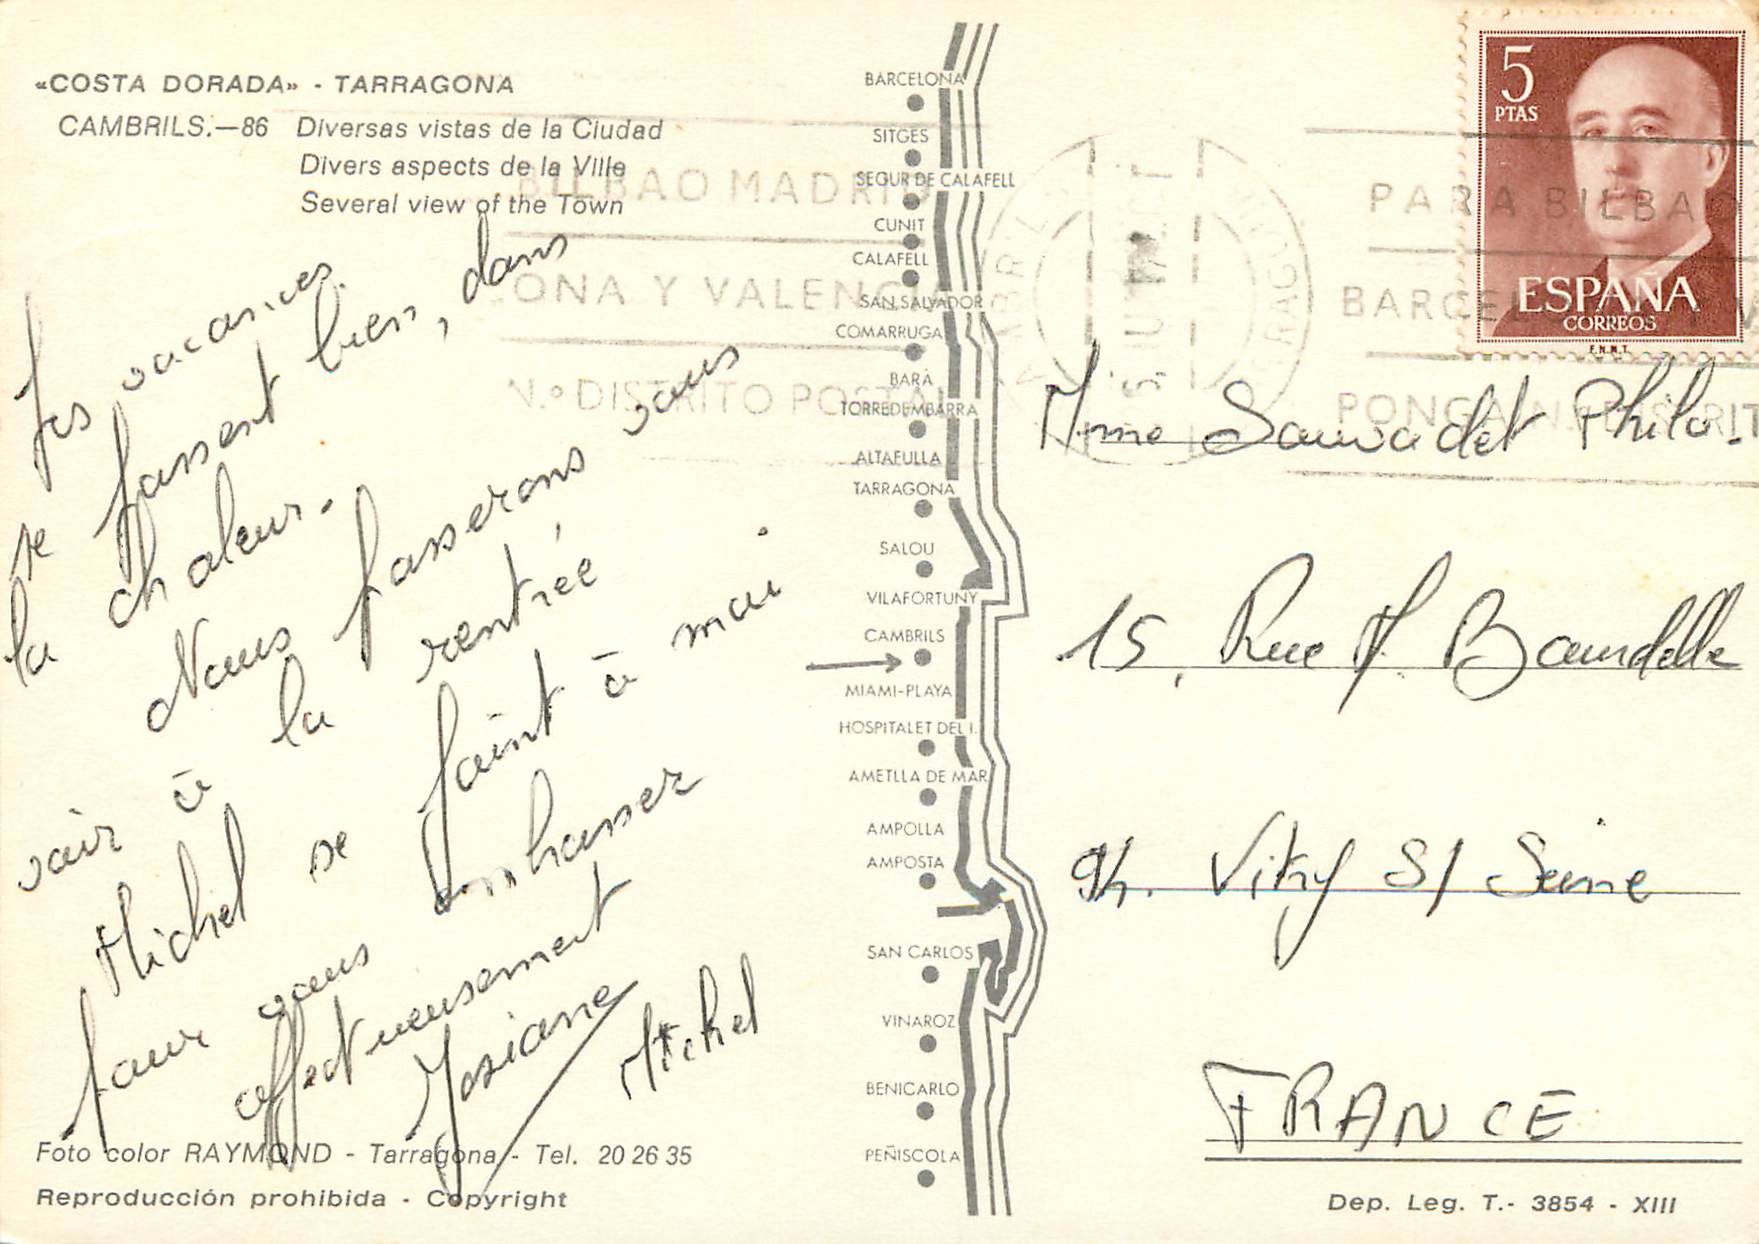 «COSTA DORADA» - TARRAGONA
CAMBRILS.—86 Diversas vistas de la Ciudad
Divers aspects de la Ville
Several view of the Town
Les vacances
se passent bien, dans
la chaleur.
Nous passerons vous
voir à la rentrée
Michel se joint à moi
pour vous embrasser
affectueusement
Josiane
Michel
Foto color RAYMOND - Tarragona - Tel. 20 26 35
Reproducción prohibida - Copyright
BARCELONA
SITGES
SEGUR DE CALAFELL
CUNIT
CALAFELL
SAN SALVADOR
COMARRUGA
BARÀ
TORREDEMBARRA
ALTAFULLA
TARRAGONA
SALOU
VILAFORTUNY
CAMBRILS
MIAMI-PLAYA
HOSPITALET DEL I.
AMETLLA DE MAR
AMPOLLA
AMPOSTA
SAN CARLOS
VINAROZ
BENICARLO
PEÑISCOLA
5
PTAS
ESPAÑA
CORREOS
F.N.M.T.
BILBAO MADRID
ONA Y VALENCIA
N.º DISTRITO POSTAL
PARA BILBAO
BARCEL
PONGA N.º DISTRIT
Mme Sauvadet Phila-
15, Rue Baudelle
94. Vitry S/ Seine
FRANCE
Dep. Leg. T.- 3854 - XIII